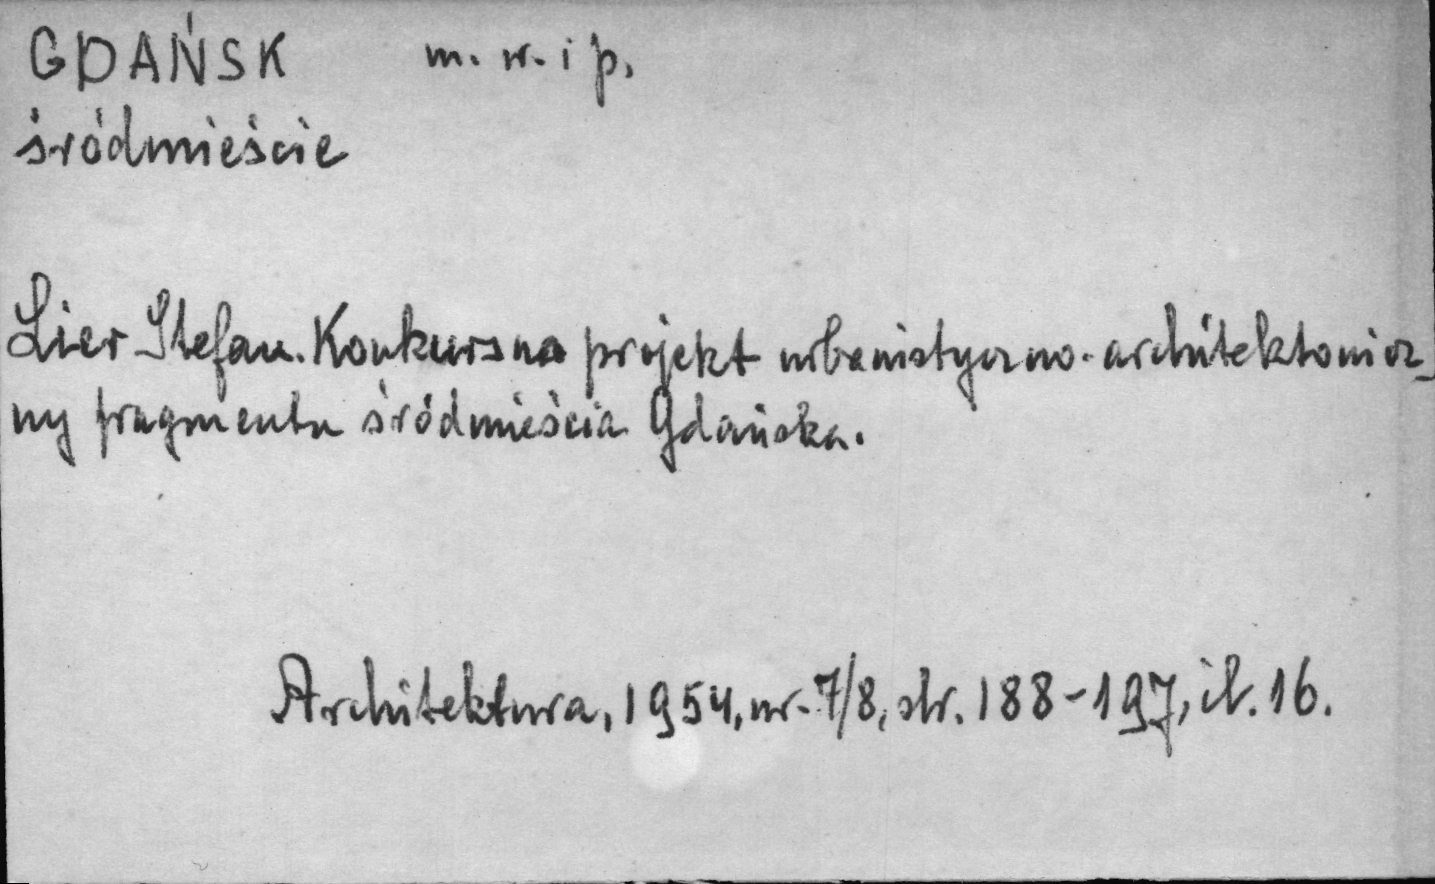 GDAŃSK m. w. i p.
śródmieście
Lier Stefan. Konkurs na projekt urbanistyczno-architektonicz-
ny fragmentu śródmieścia Gdańska.
Architektura, 1954, nr. 7/8, str. 188-197, il. 16.